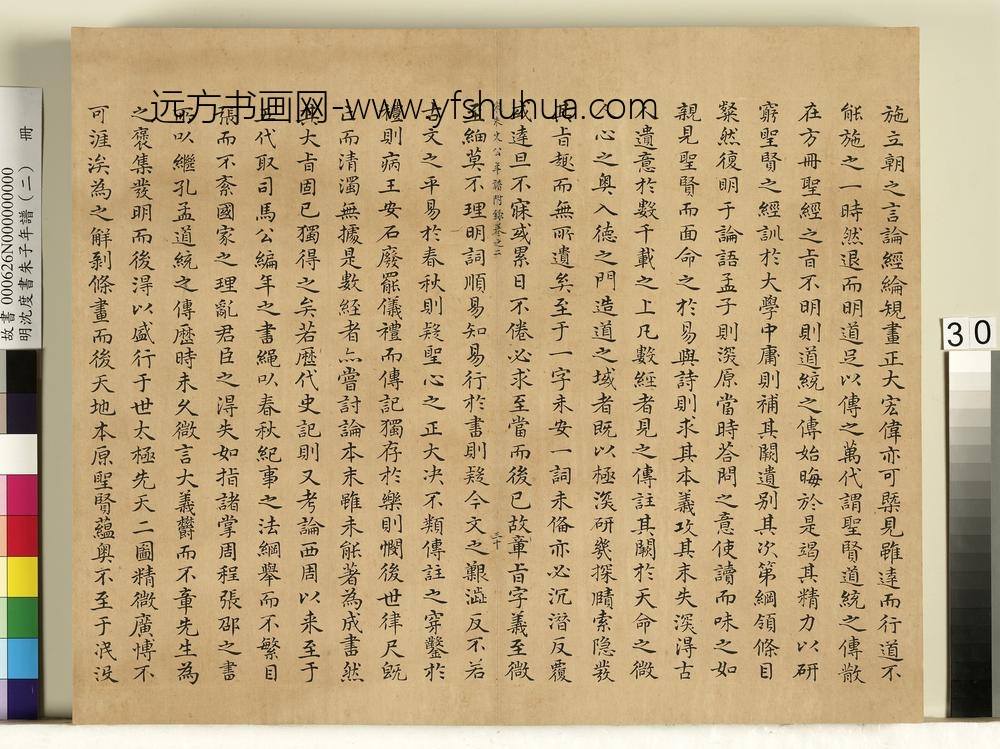 施立朝之言論經綸規畫正大宏偉亦可槩見雖達而行道不
能施之一時然退而明道足以傳之萬代謂聖賢道統之傳散
在方冊聖經之旨不明則道統之傳始晦於是竭其精力以研
窮聖賢之經訓於大學中庸則補其闕遺别其次第綱領條目
粲然復明于論語孟子則深原當時荅問之意使讀而味之如
親見聖賢而面命之於易與詩則求其本義攻其末失深得古
遺意於數千載之上凡數經者見之傳註其闕於天命之微
心之奧入德之門造道之域者既以極深研幾探賾索隱發
旨趣而無所遺矣至于一字未安一詞未俻亦必沉潛反覆
或達旦不寐或累日不倦必求至當而後已故章旨字義至微
朱文公年譜附錄卷之二
三十
至細莫不理明詞順易知易行於書則疑今文之艱澁反不若
古文之平易於春秋則疑聖心之正大决不類傳註之穿鑿於
禮則病王安石廢罷儀禮而傳記獨存於樂則憫後世律尺既
亡而清濁無據是數経者亦嘗討論本末雖未能著為成書然
其大旨固已獨得之矣若歷代史記則又考論西周以来至于
五代取司馬公編年之書繩以春秋紀事之法綱舉而不繁目
張而不紊國家之理亂君臣之得失如指諸掌周程張邵之書
所以繼孔孟道統之傳歷時未久微言大義欝而不章先生為
之褒集發明而後得以盛行于世太極先天二圖精微廣博不
可涯涘為之觧剥條畫而後天地本原聖賢蘊奧不至于泯没
远方书画网-www.yfshuhua.com
故書 000626N000000000
明沈度書朱子年譜(二) 冊
30